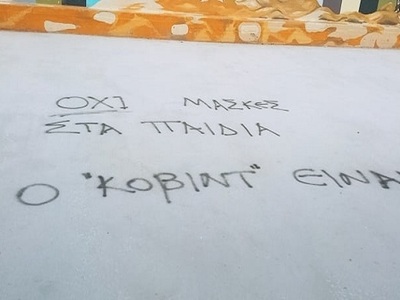 ΟΧΙ ΜΑΣΚΕΣ
ΣΤΑ ΠΑΙΔΙΑ
Ο "ΚΟΒΙΝΤ" ΕΙΝΑ